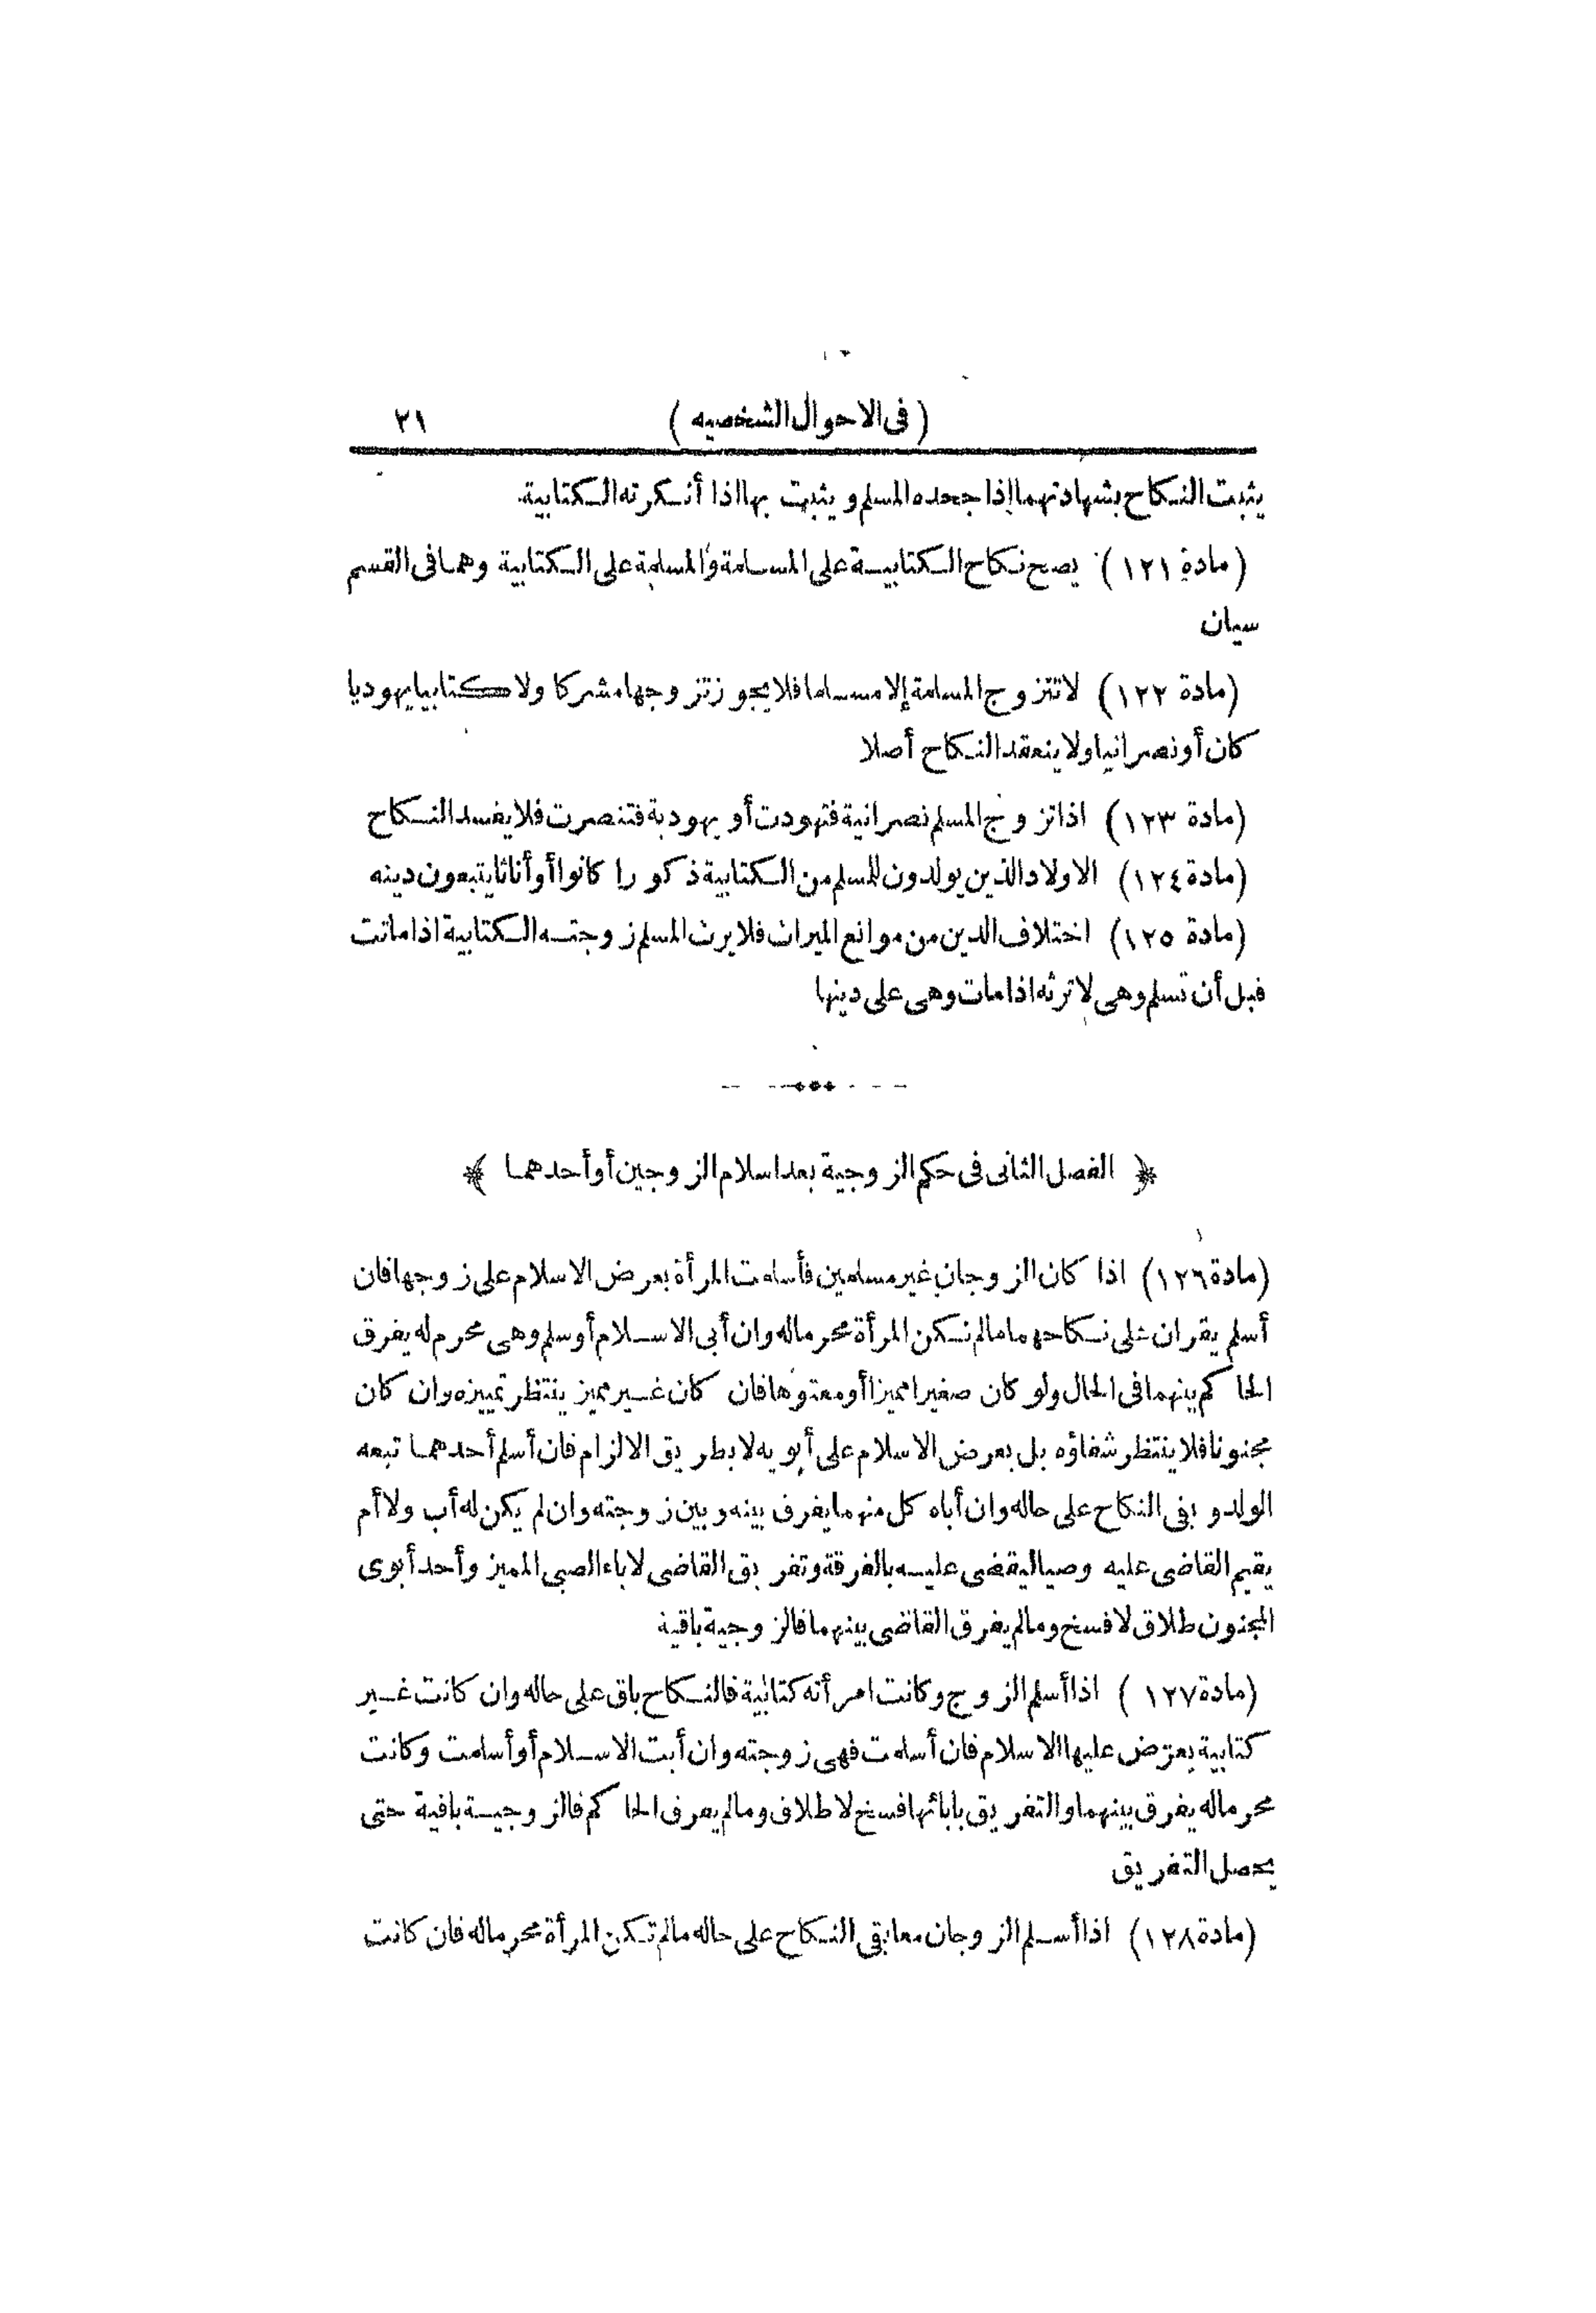 (فى الاحوال الشخصيه) ٢١
يثبت النكاح بشهادتهما إذا جحده المسلم ويثبت بها اذا أنكرته الكتابية.
(مادة ١٢١) يصح نكاح الكتابية على المسلمة والمسلمة على الكتابية وهما فى القسم
سيان
(مادة ١٢٢) لا تتزوج المسلمة إلا مسلما فلا يجوز تزوجها مشركا ولا كتابيا يهوديا
كان أو نصرانيا ولا ينعقد النكاح أصلا
(مادة ١٢٣) اذا تزوج المسلم نصرانية فتهودت أو يهودية فتنصرت فلا يفسد النكاح
(مادة ١٢٤) الاولاد الذين يولدون للمسلم من الكتابية ذكورا كانوا أو أناثا يتبعون دينه
(مادة ١٢٥) اختلاف الدين من موانع الميراث فلا يرث المسلم زوجته الكتابية اذا ماتت
قبل أن تسلم وهى لا ترثه اذا مات وهى على دينها
﴿ الفصل الثانى فى حكم الزوجية بعد اسلام الزوجين أو أحدهما ﴾
(مادة ١٢٦) اذا كان الزوجان غير مسلمين فأسلمت المرأة يعرض الاسلام على زوجها فان
أسلم يقران على نكاحهما مالم تكن المرأة محرما له وان أبى الاسلام أو سلم وهى محرم له يفرق
الحاكم بينهما فى الحال ولو كان صغيرا مميزا أو معتوها فان كان غير مميز ينتظر تمييزه وان كان
مجنونا فلا ينتظر شفاؤه بل يعرض الاسلام على أبويه لا بطريق الالزام فان أسلم أحدهما تبعه
الولد وبقى النكاح على حاله وان أباه كل منهما يفرق بينه وبين زوجته وان لم يكن له أب ولا أم
يقيم القاضى عليه وصيا ليقضى عليه بالفرقة وتفريق القاضى لاباء الصبى المميز وأحد أبوى
المجنون طلاق لا فسخ ومالم يفرق القاضى بينهما فالزوجية باقية
(مادة ١٢٧) اذا أسلم الزوج وكانت امرأته كتابية فالنكاح باق على حاله وان كانت غير
كتابية يعرض عليها الاسلام فان أسلمت فهى زوجته وان أبت الاسلام أو أسلمت وكانت
محرما له يفرق بينهما والتفريق بابائها فسخ لا طلاق ومالم يفرق الحاكم فالزوجية باقية حتى
يحصل التفريق
(مادة ١٢٨) اذا أسلم الزوجان معا بقى النكاح على حاله مالم تكن المرأة محرما له فان كانت